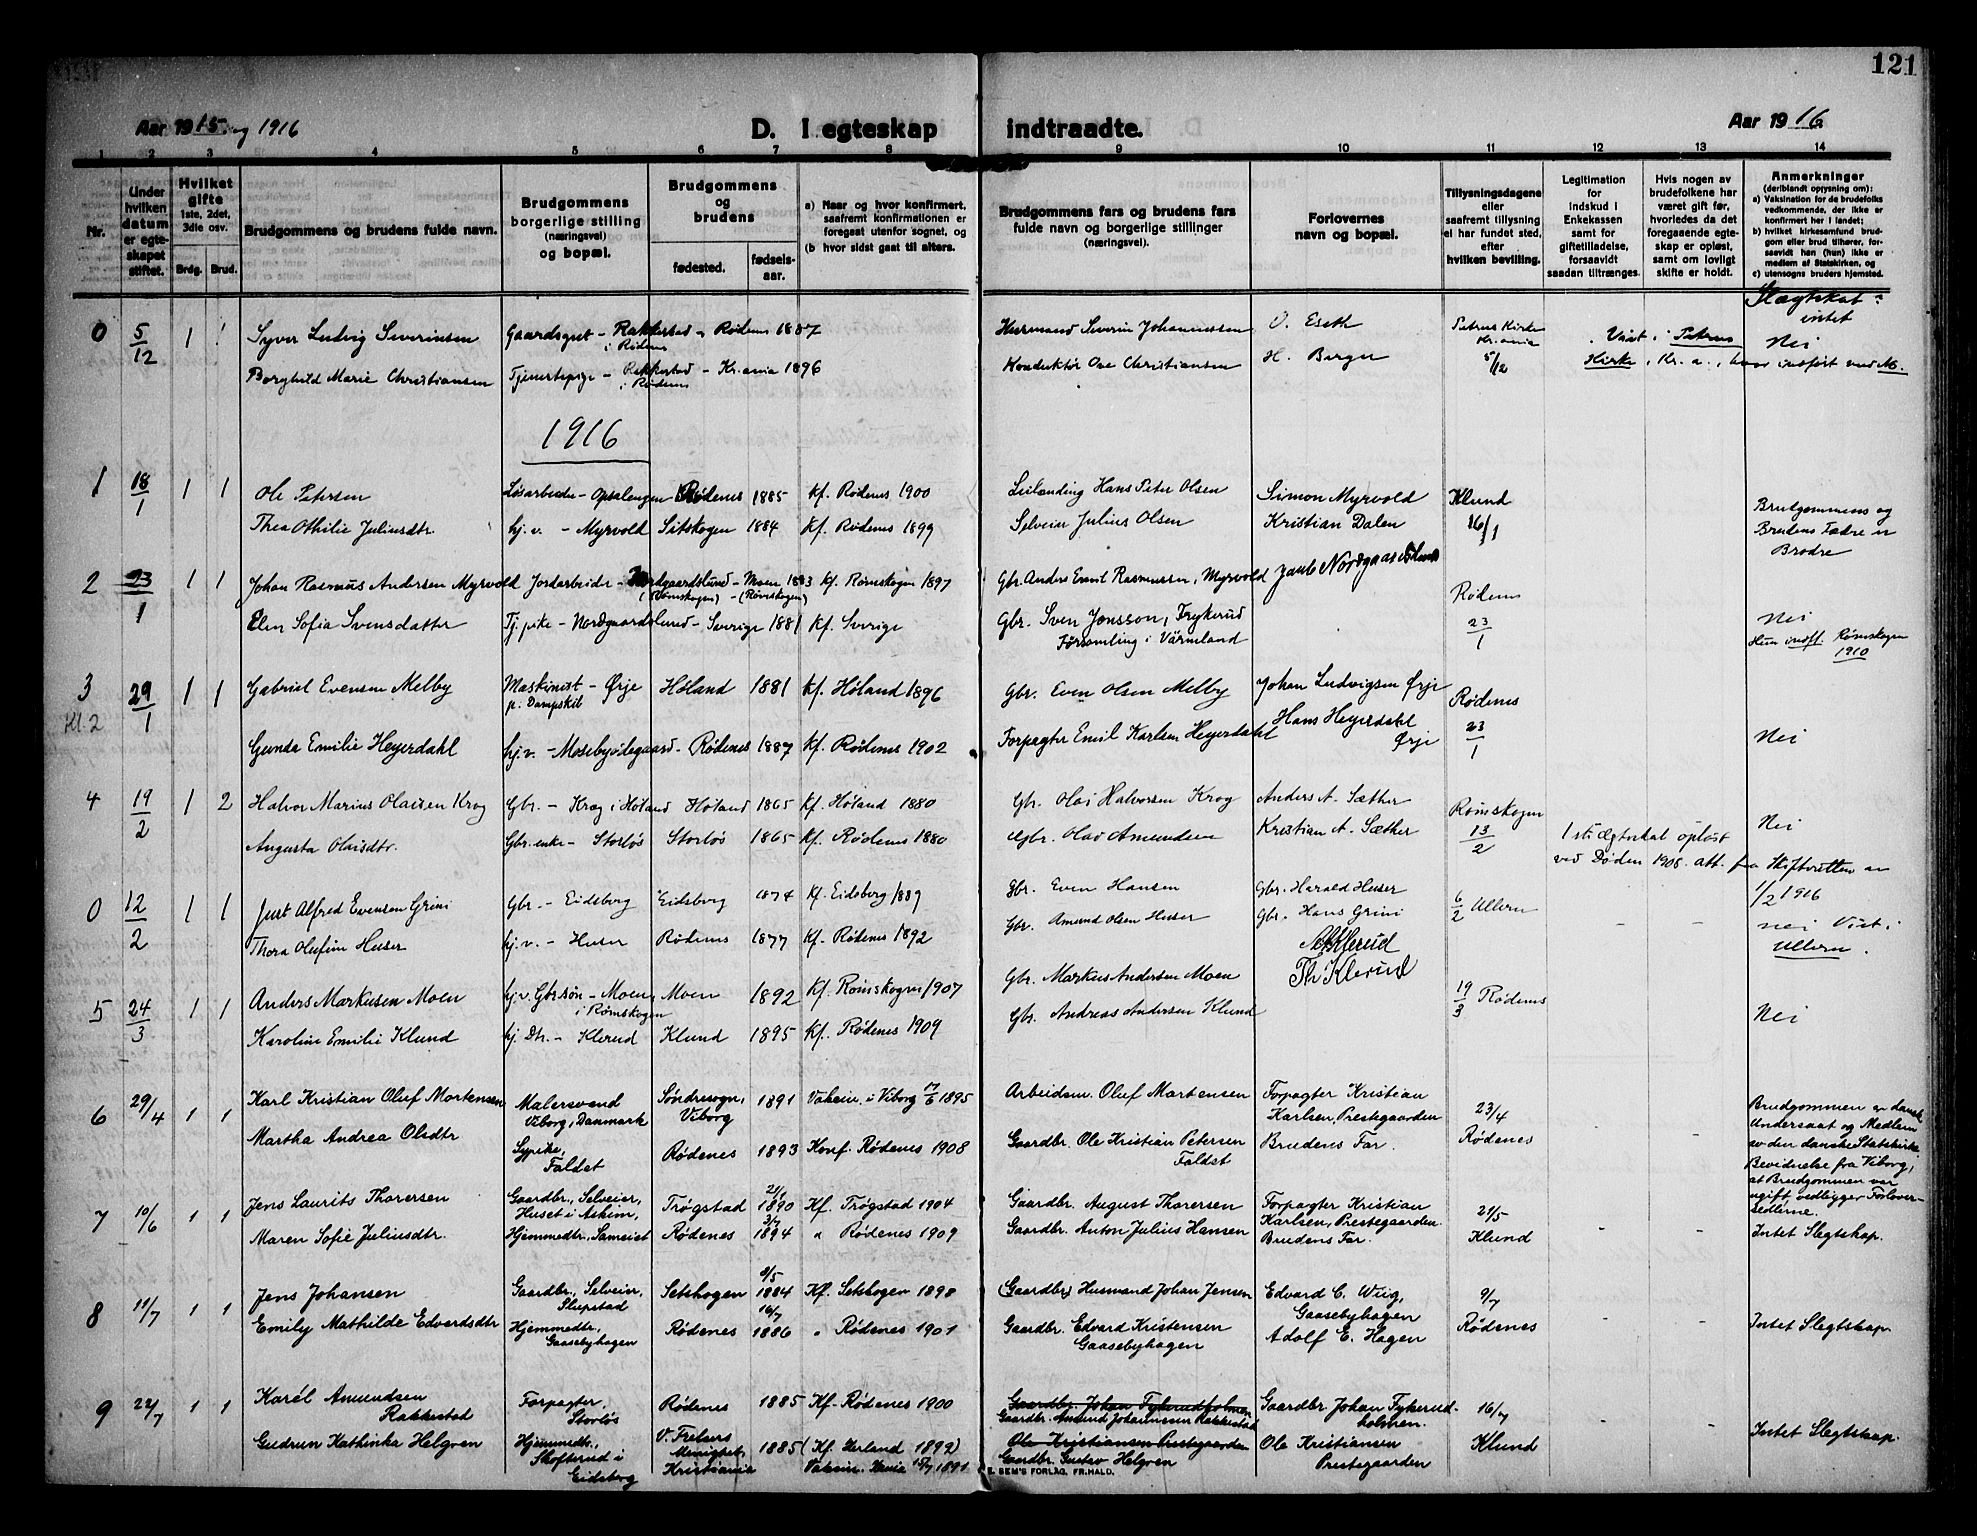 121
Aar 1915 og 1916
D. I egteskap indtraadte.
Aar 1916
1 2 3 4 5 6 7 8 9 10 11 12 13 14
Nr.
Under hvilken datum er egteskapet stiftet.
Hvilket gifte
1ste, 2det, 3die osv.
Brdg. Brud.
Brudgommens og brudens fulde navn.
Brudgommens borgerlige stilling (næringsvei) og bopæl.
Brudgommens og brudens
fødested. fødselsaar.
a) Naar og hvor konfirmert, saafremt konfirmationen er foregaat utenfor sognet, og
(b hvor sidst gaat til alters.
Brudgommens fars og brudens fars fulde navn og borgerlige stillinger (næringsvei).
Forlovernes navn og bopæl.
Tillysningsdagene eller saafremt tillysning ei har fundet sted, efter hvilken bevilling.
Legitimation for indskud i Enkekassen samt for giftetilladelse, forsaavidt saadan tiltrænges.
Hvis nogen av brudefolkene har været gift før, hvorledes da det foregaaende egteskap er opløst, samt om lovligt skifte er holdt.
Anmerkninger
(deriblandt oplysning om):
a) Vaksination for de brudefolks vedkommende, der ikke er konfirmert her i landet;
b) hvilket kirkesamfund brudgom eller brud tilhører, forsaavidt han (hun) ikke er medlem av Statskirken, og
c) utensogns bruders hjemsted.
0 5/12 1 1 Syver Ludvig Severinsen Gaardsgut - Rakkestad i Rødenes Rødenes 1887 Husmand Severin Johannessen O. Eseth Petrus Kirke Kr.ania 5/12 Viet i Petrus Nei
Borghild Marie Christiansen Tjenestepige - Rakkestad i Rødenes - Kr.ania 1896 Konduktør Ove Christiansen H. Berger Kirke, Kr. a.,
1916
1 18/1 1 1 Ole Petersen Løsarbeider - Opsalengen Rødenes 1885 Kf. Rødenes 1900 Leilending Hans Peter Olsen Simon Myrvold Klund 16/1 Brudgommens og
Thea Othilie Juliusdtr hj.v. - Myrvold Setskogen 1884 Kf. Rødenes 1899 Selveier Julius Olsen Kristian Dalen Brudens Fædre er Brødre
2 23/1 1 1 Johan Rasmus Andersen Myrvold Jordarbeider - Nordgaardslund (Rømskogen) - Moen (Rømskogen) 1883 Kf. Rømskogen 1897 Gbr. Anders Emil Rasmussen, Myrvold Rødenes 23/1
Elen Sofia Svensdatter Tj. pike - Nordgaardslund - Sverige 1881 Kf. Sverige Gbr. Sven Jonsson, Frykerud Församling i Värmland Nei Hun indfl. Rømskogen 1910
3 Kl. 2 29/1 1 1 Gabriel Evensen Melby Maskinist p. Dampskib - Ørje Høland 1881 Kf. Høland 1896 Gbr. Even Olsen Melby Johan Ludvigsen Ørje Rødenes 23/1
Gunda Emilie Heyerdahl hj.v. - Mosebyødegaard - Rødenes 1887 Kf. Rødenes 1902 Forpagter Emil Karlsen Heyerdahl Hans Heyerdahl Ørje Nei
4 19/2 1 2 Halvor Marius Olaisen Krog Gbr. - Krog i Høland Høland 1865 Kf. Høland 1880 Gbr. Olai Halvorsen Krog Anders A. Sæther Rømskogen 13/2 Nei
Augusta Olausdtr. Gbr. enke - Storløs Storløs 1865 Kf. Rødenes 1880 Gbr. Olav Amundsen Kristian A. Sæther 1ste Ægteskab opløst ved Døden 1908. att. fra Skifteretten av 1/2 1916
0 12/2 1 1 Just Alfred Evensen Grini Gbr. - Eidsberg Eidsberg 1874 Kf. Eidsberg 1889 Gbr. Even Hansen Gbr. Harald Huser 6/2 Ullern
Thora Olufine Huser hj.v. - Huser Rødenes 1877 Kf. Rødenes 1892 Gbr. Amund Olsen Huser Gbr. Hans Grini - - nei Viet i Ullern.
5 24/3 1 1 Anders Markusen Moen hj.v. Gbr.søn - Moen i Rømskogen Moen 1892 Kf. Rømskogen 1907 Gbr. Markus Andersen Moen Klerud Th Klerud 19/3 Rødenes
Karoline Emilie Klund hj. Dtr. - Klerud Klund 1895 Kf. Rødenes 1909 Gbr. Andreas Andersen Klund Nei
6 29/4 1 1 Karl Kristian Oluf Mortensen Malersvend Viborg, Danmark Søndresogn, Viborg 1891 Vaksin. i Viborg 17/6 1895 Arbeidsm. Oluf Mortensen Forpagter Kristian Karlsen, Prestegaarden 23/4 Rødenes - -
Martha Andrea Olsdtr Sypike, Faldet Rødenes 1893 Konf. Rødenes 1908 Gaardbr. Ole Kristian Petersen Faldet Brudens Far.
Brudgommen er dansk Undersaat og Medlem av den danske Statskirke. Bevidnelse fra Viborg, at Brudgommen var ugift, vedligger Forloversedlerne.
7 10/6 1 1 Jens Laurits Thorersen Gaardbr., Selveier, Huset i Askim, Trøgstad 21/1 1890 Kf. Trøgstad 1904 Gaardbr. August Thorersen Forpagter Kristian Karlsen, Prestegaarden. 21/5 Klund - -
Maren Sofie Juliusdtr. Hjemmedtr., Sameiet Rødenes 3/7 1894 " Rødenes 1909 Gaardbr. Anton Julius Hansen Brudens Far. Intet Slegtskap.
8 11/7 1 1 Jens Johansen Gaardbr., Selveier, Slupstad Setskogen 8/5 1884 Kf. Setskogen 1898 (Gaardbr.) Husmand Johan Jensen Edvard C. Wiig, Gaasebyhagen 9/7 Rødenes - -
Emily Mathilde Edvardsdtr Hjemmedtr., Gaasebyhagen Rødenes 16/7 1886 " Rødenes 1901 Gaardbr. Edvard Kristensen Gaasebyhagen Adolf E. Hagen Intet Slegtskap.
9 22/7 1 1 Karel Amundsen Rakkestad Forpagter, Storløs Rødenes 1885 Kf. Rødenes 1900 Gaardbr. Johan Fykerudholmen Gaardbr. Amund Johannessen Rakkestad Gaardbr. Johan Fykerudholmen. 16/7 Klund
Gudrun Kathinka Helgren Hjemmedtr., Skofterud i Eidsberg V. Frelsers Menighet, Kristiania 1885 (Kf. Herland 1899) Vaksin. 15/7 1891 Ole Kristiansen Prestegaarden Gaardbr. Gustav Helgren Ole Kristiansen Prestegaarden Intet Slegtskap.
E. SEM'S FORLAG, FR.HALD.